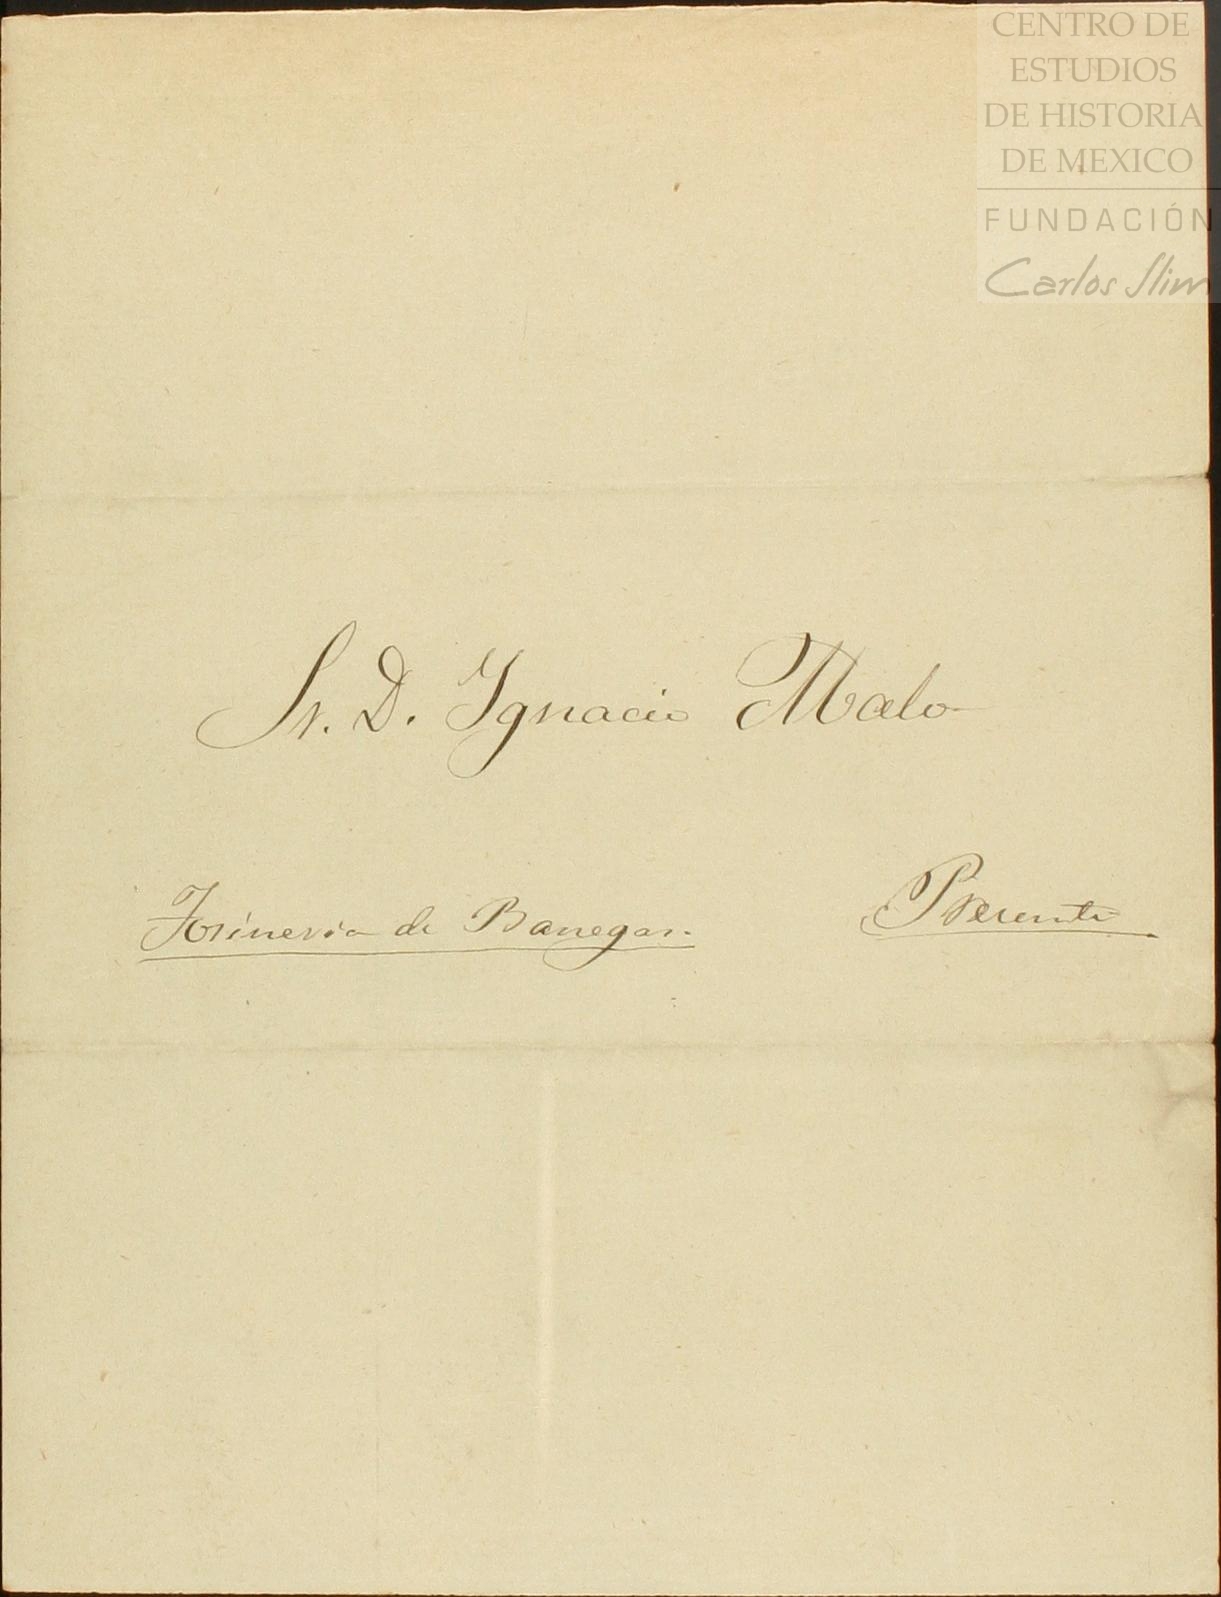 CENTRO DE
ESTUDIOS
DE HISTORIA
DE MEXICO
FUNDACIÓN
Carlos Slim
Sr. D. Ignacio Malo
de Banegas.
Presente